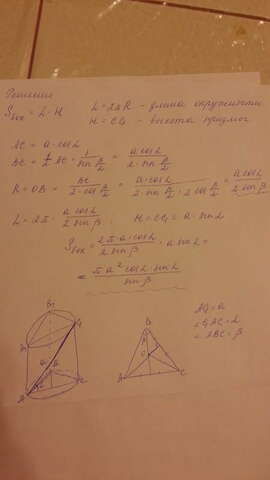 Решение
Sбок = L·H   L = 2πR - длина окружности
H = CC₁ - высота призмы
AC = a·cos α
BC = ½ AC · 1/(sin β/2) = a cos α/(2·sin β/2)
R = OB = BC/(2·cos β/2) = a·cos α/(2·sin β/2 · 2 cos β/2) = a cos α/(2 sin β)
L = 2π · a cos α/(2 sin β); H = CC₁ = a·sin α
Sбок = 2π·a·cos α/(2 sin β) · a sin α =
= π a² cos α·sin α/sin β
B₁
A₁
C₁
B
A
C
B
O
A
C
AC₁ = a
∠C₁AC = α
∠ABC = β